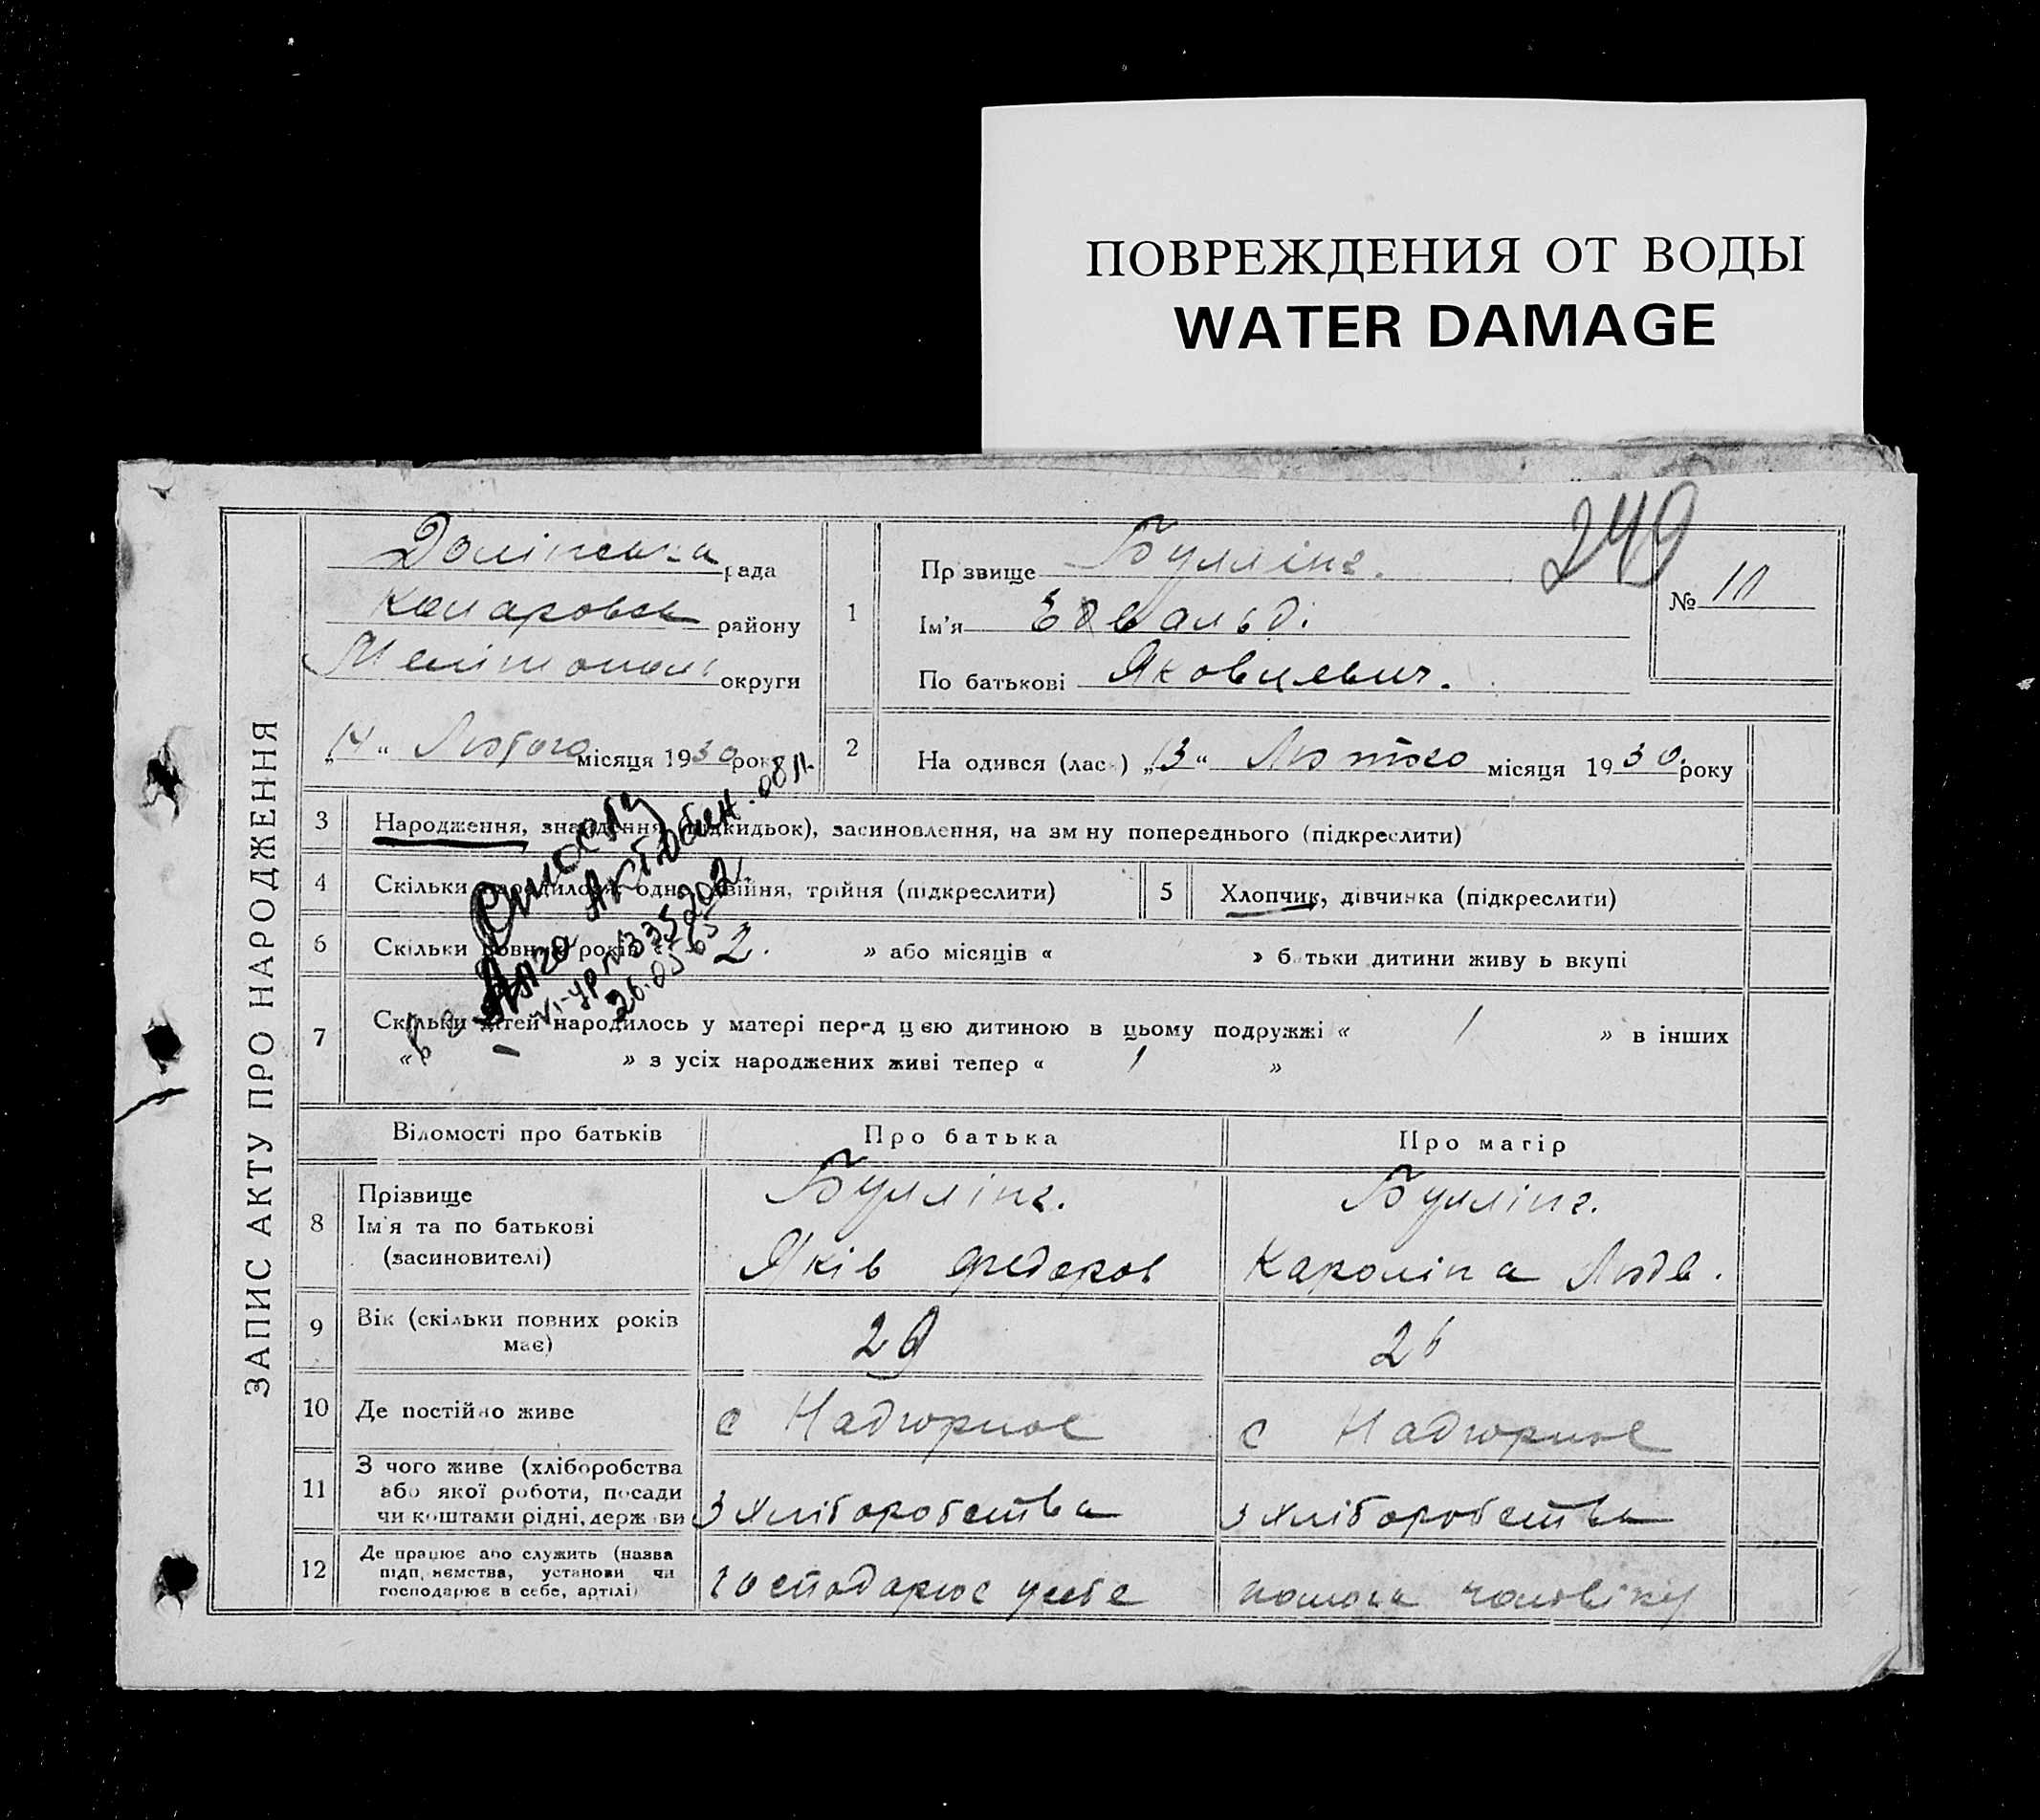 ПОВРЕЖДЕНИЯ ОТ ВОДЫ
WATER DAMAGE
249
ЗАПИС АКТУ ПРО НАРОДЖЕННЯ
Долінська рада
Комаровськ району
Мелітополь округи
„14“ Лютого місяця 1930 року
1
Прізвище Буллінг.
Ім'я Едвальд.
По батькові Яковлевич.
№ 10
2
На одився (лась) „13“ Лютого місяця 1930 року
3 Народження, знайдення (підкидьок), засиновлення, на зміну попереднього (підкреслити)
4 Скільки народилось: одно, двійня, трійня (підкреслити)
5 Хлопчик, дівчинка (підкреслити)
6 Скільки повних років « 2. » або місяців « » батьки дитини живуть вкупі
7 Скільки дітей народилось у матері перед цією дитиною в цьому подружжі « 1 » в інших
« – » з усіх народжених живі тепер « 1 »
Актюбин. обл.
VI-УР №335202
26.05.65
Відомості про батьків
Про батька
Про матір
8 Прізвище
Ім'я та по батькові
(засиновителі)
Буллінг.
Яків Федоров
Буллінг.
Кароліна Людв.
9 Вік (скільки повних років
має)
29
26
10 Де постійно живе
с Надгорное
с Надгорное
11 З чого живе (хліборобства
або якої роботи, посади
чи коштами рідні, держави
З хліборобства
З хліборобства
12 Де працює або служить (назва
підприємства, установи чи
господарює в себе, артілі)
господарює у себе
помога чоловіку